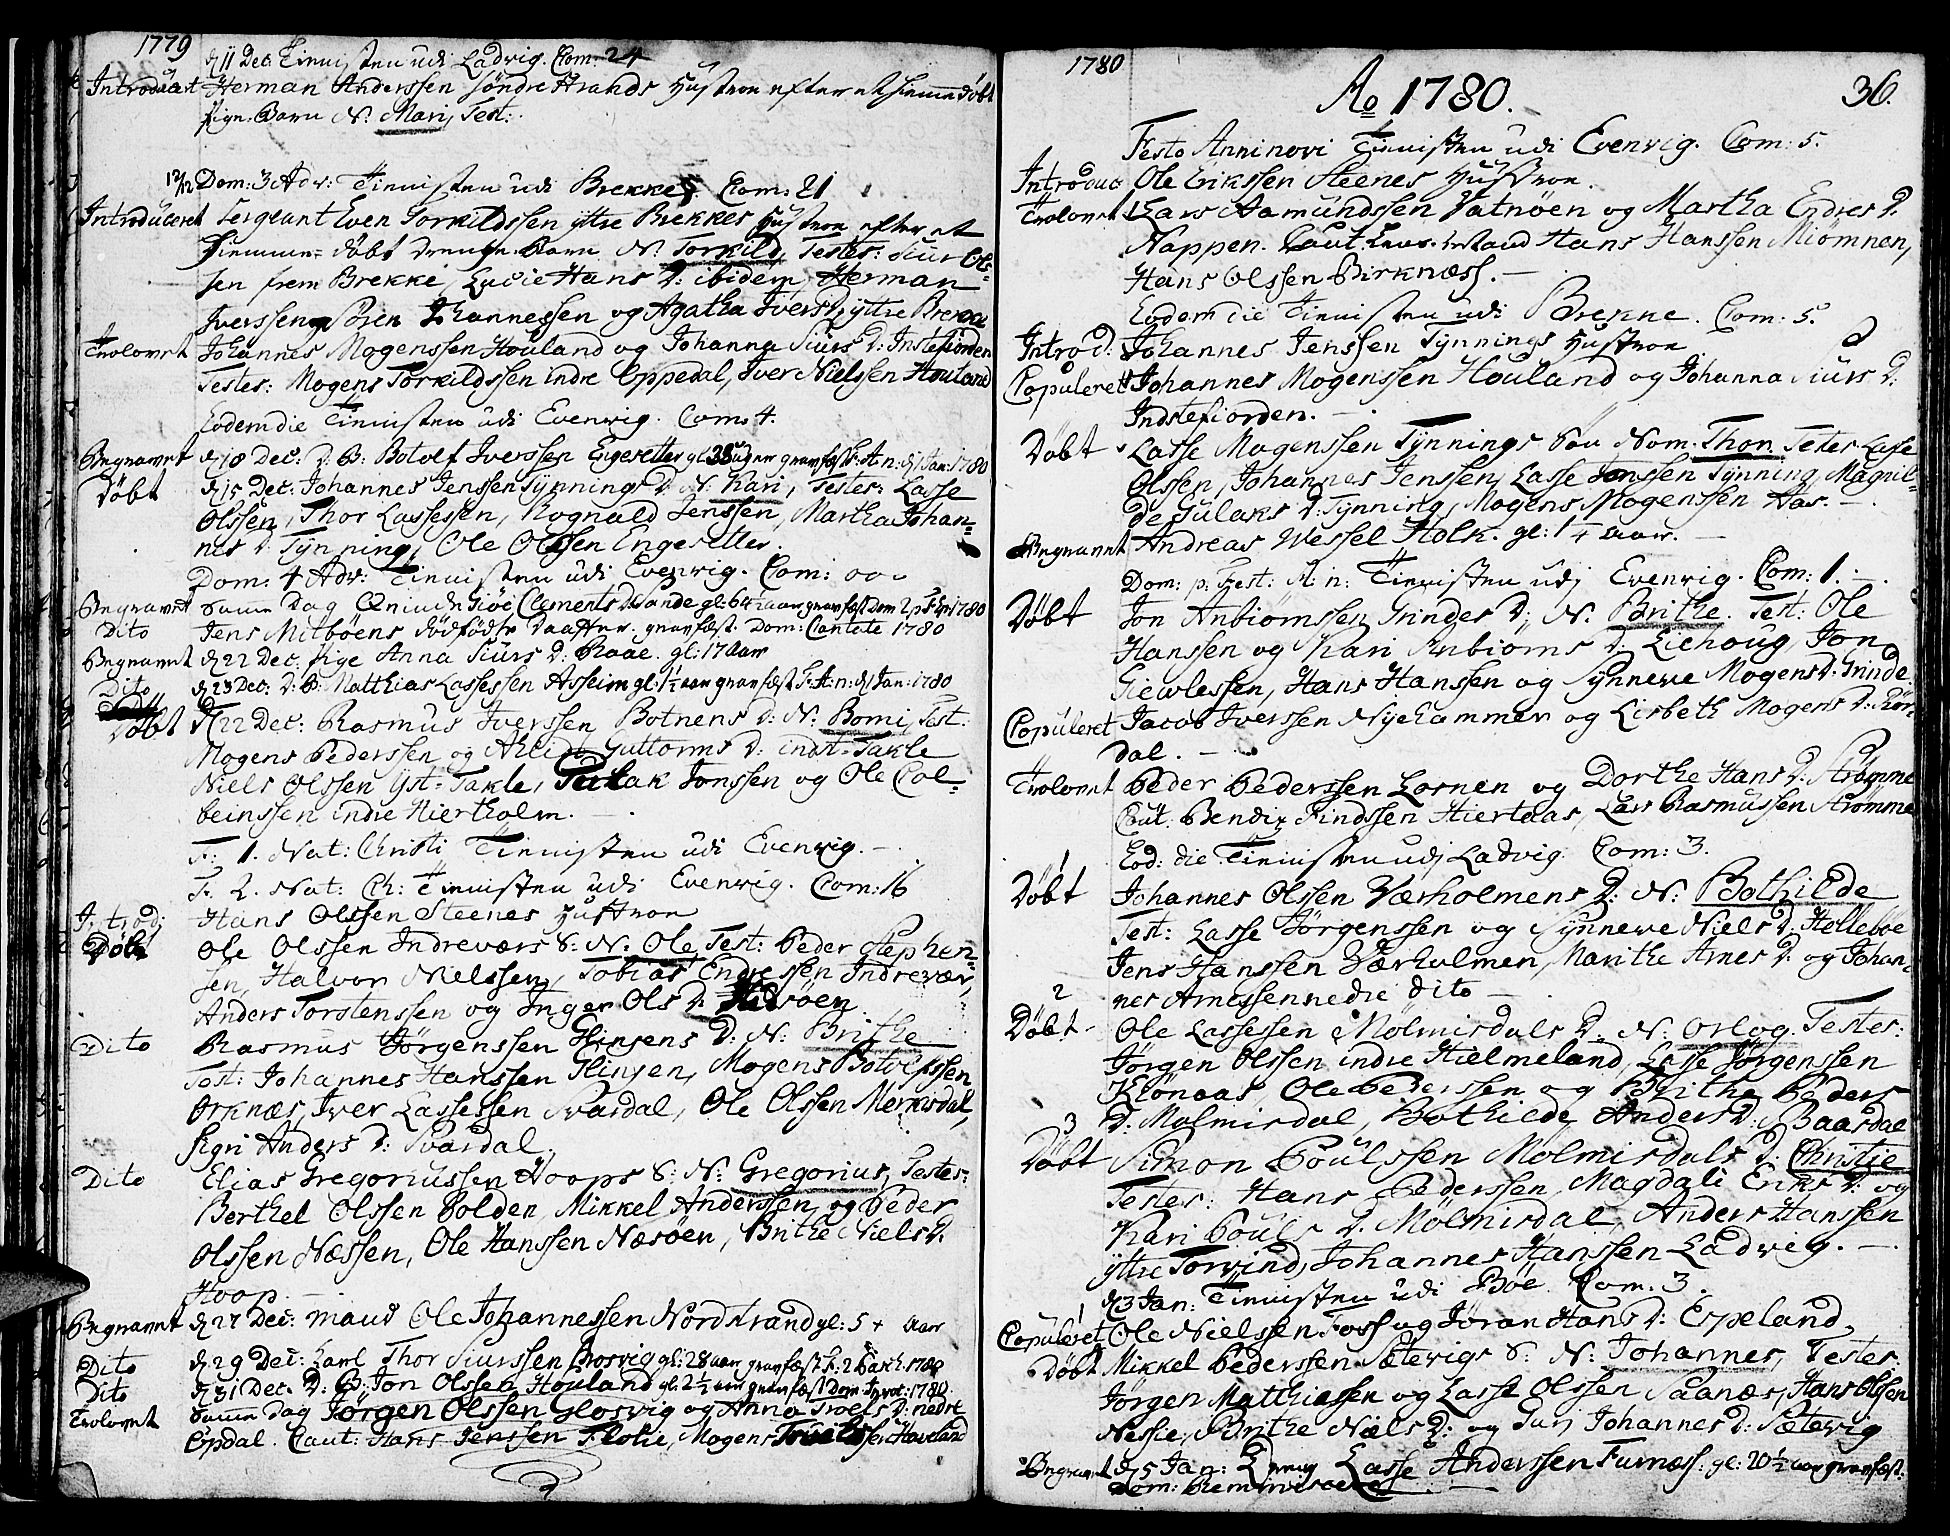 1779
d 11 Dec: Tienisten udi Ladvig. Com: 24
Introducert Herman Anderssen Søndre Strands Hustroe efter et hiemme døbt
pige-Barn N: Mari, Test:
12/12 Dom: 3 Adv: Tienisten udi Brekke. Com: 21
Introduceret Sergeant Even Torkildssen yttre Brekkes Hustroe efter et
hiemme-døbt Drenge-Barn N: Torkild, Testes: Siur Ols-
sen frem Brekke, Lucie Hans D: ibidem, Herman
Iverssen, Sören Johannessen og Agatha Ivers D: yttre Brekke
Trolovet Johannes Mogenssen Houland og Johanna Siurs D: Instefiorden
Testes: Mogens Torkildssen indre Oppedal, Iver Nielssen Houland
Eodem die Tienisten udi Evenvig. Com: 4.
Begravet d 18 Dec: D: B: Botolf Iverssen Engesetter gl: 38 uger gravfæst F: A: n: d 1 Jan: 1780
Døbt d 15 Dec: Johannes Jenssen Tynnings D: N: Kari, Testes: Lasse
Olssen, Thor Lassessen, Rognald Jenssen, Martha Johan-
nes D: Tynning, Ole Olssen Engesetter.
Dom: 4 Adv: Tienisten udi Evenvig. Com: 00
Begravet Samme Dag Qvinde Siøe Clements D: Sande gl: 64 1/2 aar gravfæst Dom 2 p: 1780
Dito Jens Mitbøens dødfødte Daatter. gravfæst. Dom: Cantate 1780
Begravet d 22 Dec: Pige Anna Siurs D: Raae. gl: 17 aar
Dito d 23 Dec: D: B: Matthias Lassessen Asseim gl: 1 1/2 aar gravfæst F: A: n: d 1 Jan: 1780
Døbt d 22 Dec: Rasmus Iverssen Botnens D: N: Bomi, Test:
Mogens Pederssen og Ahlide Guttorms D: indr. Takle
Niels Olssen Yst-Takle, Jonssen og Ole Col-
beinssen indre Hiertholm.
F: 1. Nat: Christi Tienisten udi Evenvig.
F. 2. Nat: Ch: Tienisten udi Evenvig. Com: 16
Introd: Hans Olssen Steenes Hustroe
Døbt Ole Olssen Indreværs S: N: Ole Test: Peder Stephen-
sen, Halvor Nielssen, Tobias Endressen Indrevær,
Anders Torstenssen og Inger Ols D:
Dito Rasmus Jørgenssen Hlinsens D: N: Brithe
Test: Johannes Hanssen Hlinsen, Mogens Botolfssen
Ørknæs, Iver Lassessen Svardal, Ole Olssen Merksdal,
Sigri Anders D: Svardal.
Dito Elias Gregoriussen Hoops S: N: Gregorius, Testes:
Berthel Olssen Polden, Mikkel Anderssen og Peder
Olssen Næssen, Ole Hanssen Næsøen, Brithe Niels D:
Hoop.
Begravet d 27 Dec: Mand Ole Johannessen Nordstrand gl: 5+ aar
Dito d 29 Dec: Karl Thor Siurssen Brosvig gl: 28 aar gravfæst F: 2 Pasch. 1780
Dito d 31 Dec. D: B: Jon Olssen Houland gl: 2 1/2 aar gravfæst Dom Invoc: 1780.
Trolovet Samme dag Jørgen Olssen Glosvig og Anna Troels D: nedre
Opdal. Caut: Hans Jenssen Flolie, Mogens Truelssen Haveland
1780
Ao 1780.
36.
Festo Anni novi Tienisten udi Evenvig. Com: 5.
Introduc Ole Erikssen Steenes Hustroe.
Trolovet Lars Aamundssen Vatnøen og Martha Endres D:
Nappen. Caut: Hans Hanssen Miømnen,
Hans Olssen Birknæss.
Eodem die Tienisten udi Brekke. Com: 5.
Introd: Johannes Jenssen Tynnings Hustroe
Copuleret Johannes Mogenssen Houland og Johanna Siurs D:
Indstefiorden.
Døbt Lasse Mogenssen Tynnings Søn Nom: Thon Testes Lasse
Olssen, Johannes Jenssen, Lasse Jonssen Tynning, Magnil-
de Gulaks D: Tynning, Mogens Mogenssen Aas.
Begravet Andreas Wessel Holk. gl: 1 1/4 aar.
Dom: p: Fest: A: n: Tienisten udi Evenvig. Com: 1.
Døbt Jon Anbiørnssen Grindes D: N: Brithe Test: Ole
Hanssen og Kari Anbiørns D: Eichoug, Jon
Siewlessen, Hans Hanssen og Synneve Mogens D: Grinde
Copuleret Jacob Iverssen Nyehammer og Lisbeth Mogens D: Rør-
dal.
Trolovet Peder Pederssen Losnen og Dorthe Hans D: Strømme
Caut: Bendix Findssen Hiertaas, Lars Rasmussen Strømme
Eod: die Tienisten udi Ladvig Com: 3.
Døbt Johannes Olssen Værholmens D: N: Bothilde
Test: Lasse Jørgenssen og Synneve Niels D: Hellebøe
Jens Hanssen Værholmen, Marithe Arnes D: og Johan-
nes Arnessen nedre dito
2 Døbt Ole Lassessen Mølmisdals D: N: Orlog. Testes:
Jørgen Olssen indre Hielmeland, Lasse Jørgenssen
Klønaas, Ole Pederssen og Brithe Peders
D: Molmisdal, Bothilde Anders D: Baardal
3 Døbt Simon Poulssen Mølmisdals D: Christie
Testes: Hans Pederssen, Magdali Eriks D: og
Kari Pouls D: Mølmisdal, Anders Hanssen
yttre Torvind, Johannes Hanssen Ladvig.
d 3 Jan: Tienisten udi Bøe. Com: 3.
Copuleret Ole Nielssen Foss og Jøran Hans D: Espeland,
Døbt Mikkel Pederssen Sætevigs S: N: Johannes, Testes:
Jørgen Matthiassen og Lasse Olssen Saanæs, Hans Olssen
Nessie, Brithe Niels D: og Guri Johannes D: Sætevig
Begravet d 5 Jan: Dreng Lasse Anderssen Furnæss: gl: 20 1/2 aar gravfæst:
Dom: Reminiscere